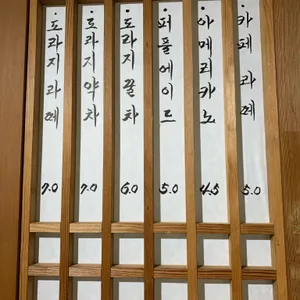 카페라떼 5.0
아메리카노 4.5
퍼플에이드 5.0
도라지꿀차 6.0
도라지약차 7.0
도라지라떼 7.0